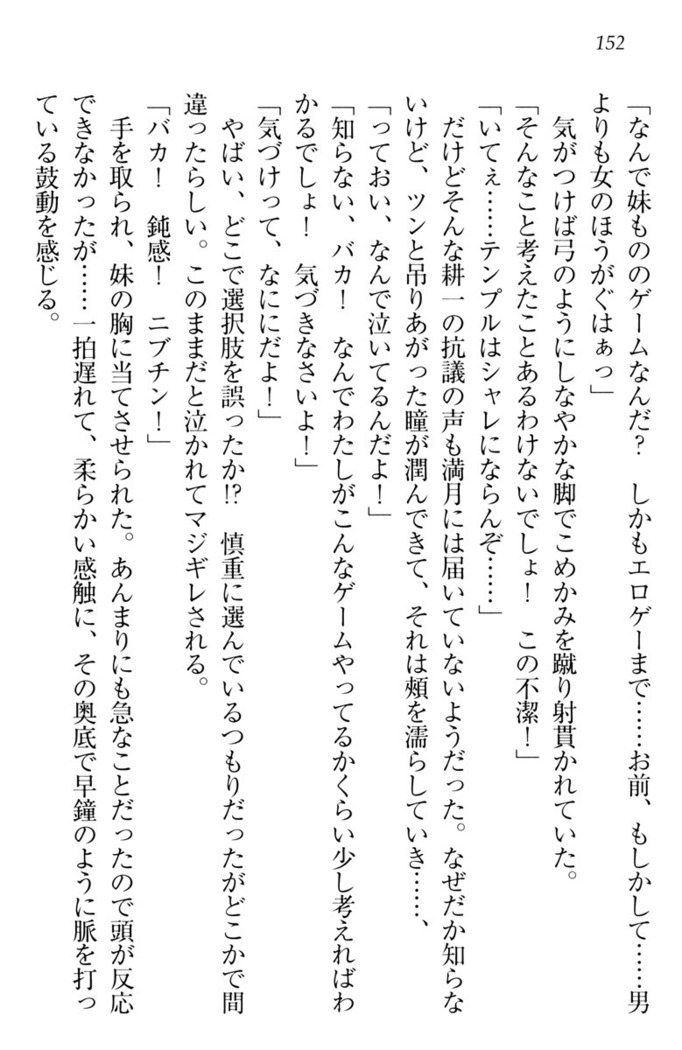 152
「なんで妹もののゲームなんだ？　しかもエロゲーまで……お前、もしかして……男
よりも女のほうがぐはぁっ」
気がつけば弓のようにしなやかな脚でこめかみを蹴り射貫かれていた。
「そんなこと考えたことあるわけないでしょ！　この不潔！」
「いてぇ……テンプルはシャレにならんぞ……」
だけどそんな耕一の抗議の声も満月には届いていないようだった。なぜだか知らな
いけど、ツンと吊りあがった瞳が潤んできて、それは頰を濡らしていき……、
「っておい、なんで泣いてるんだよ！」
「知らない、バカ！　なんでわたしがこんなゲームやってるかくらい少し考えればわ
かるでしょ！　気づきなさいよ！」
「気づけって、なににだよ！」
やばい、どこで選択肢を誤ったか!?　慎重に選んでいるつもりだったがどこかで間
違ったらしい。このままだと泣かれてマジギレされる。
「バカ！　鈍感！　ニブチン！」
手を取られ、妹の胸に当てさせられた。あんまりにも急なことだったので頭が反応
できなかったが……一拍遅れて、柔らかい感触に、その奥底で早鐘のように脈を打っ
ている鼓動を感じる。